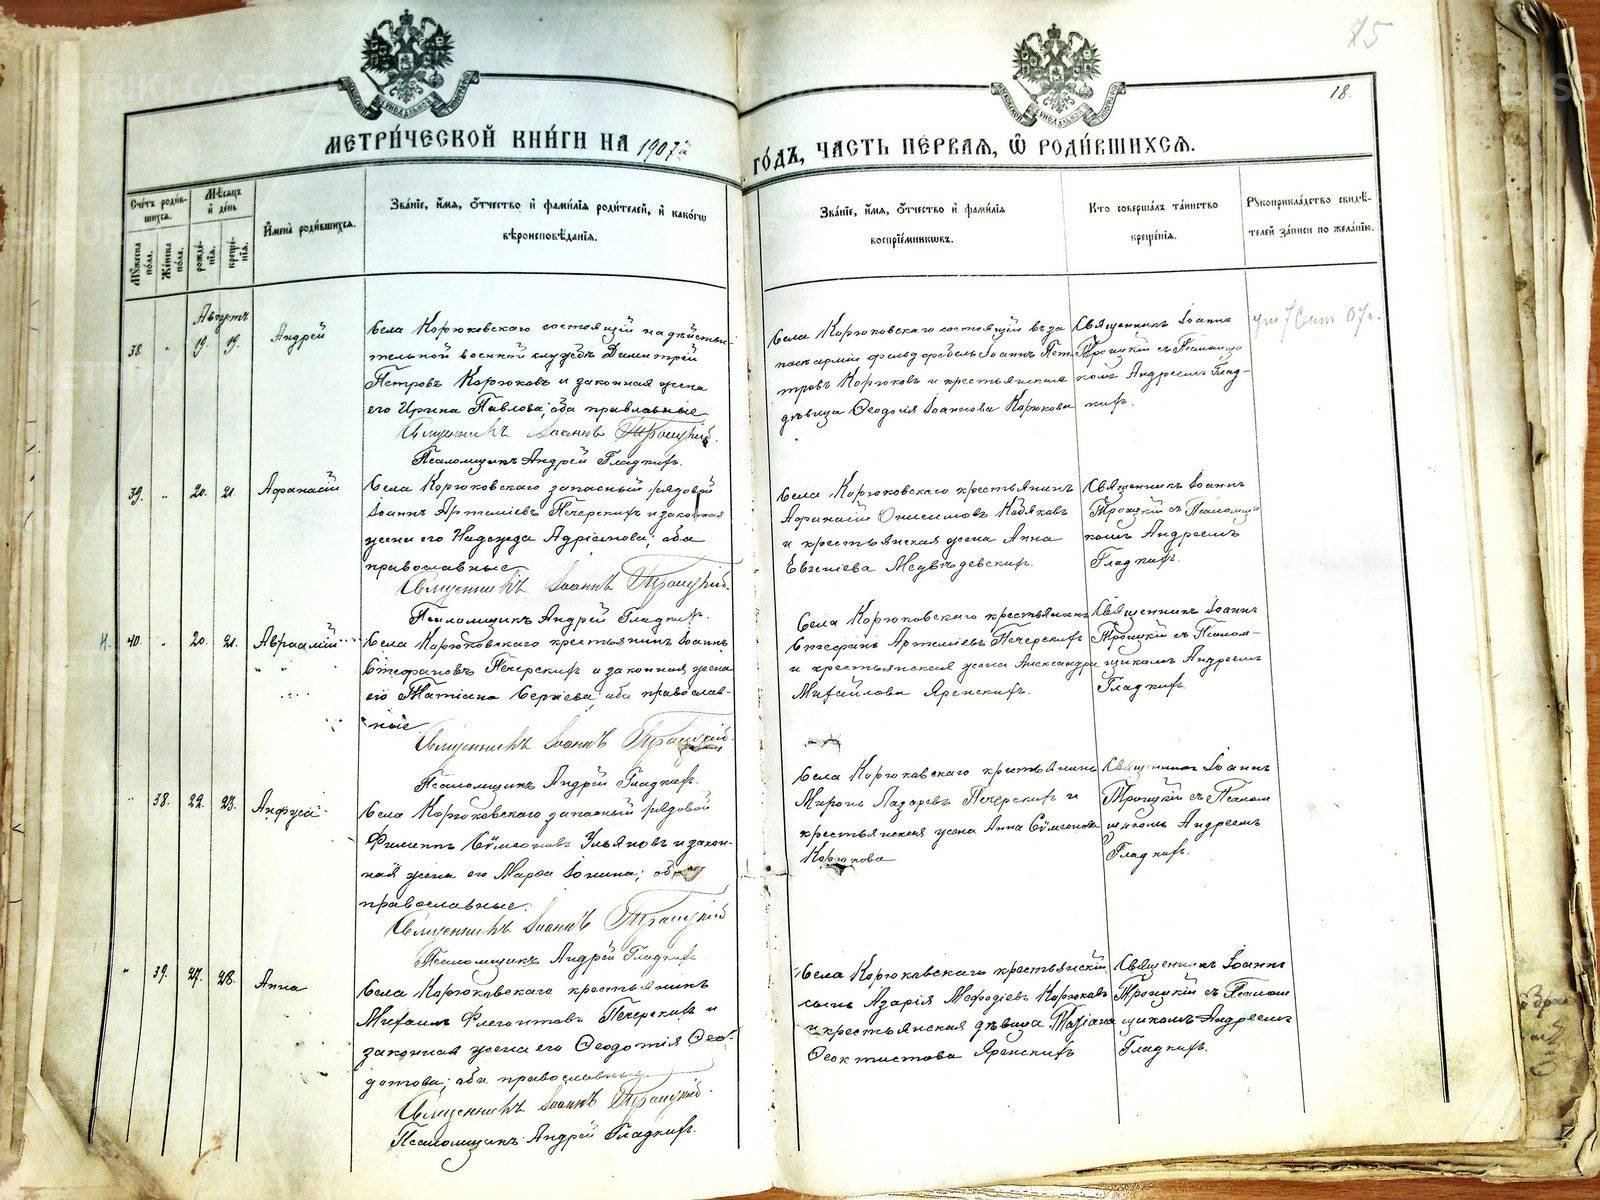 75
18.
МЕТРИ́ЧЕСКОЙ КНИ́ГИ НА 1907й
ГО́ДЪ, ЧАСТЬ ПЕ́РВАЯ, Ѽ РОДИ́ВШИХСЯ.
Сче́тъ роди́в-
шихся.
Мꙋ́жеска по́ла.
Же́нска по́ла.
Мѣ́сяцъ и҆ де́нь
рожде́-
нїѧ.
креще́-
нїѧ.
И҆мена̀ роди́вшихся.
Зва́нїе, и҆́мя, ѻ҆́тчество и҆ фами́лїя роди́телей, и҆ како́гѡ
вѣроисповѣ́данїѧ.
Зва́нїе, и҆́мя, ѻ҆́тчество и҆ фами́лїя
воспрїе́мникѡвъ.
Кто̀ соверша́лъ та́инство
креще́нїѧ.
Рꙋкоприкла́дство свидѣ́-
телей за́писи по жела́нїю.
Августъ
38. " 19. 19. Андрей
Села Корюковскаго состоящій на дѣйстви-
тельной военной службѣ Димитрій
Петровъ Корюковъ и законная жена
его Ирина Павлова; оба правлавные
Священникъ Іоаннъ Троицкій.
Псаломщикъ Андрей Гладкихъ.
Села Корюковскаго состоящій въ за
пасѣ арміи фельдфебель Іоаннъ Пет
тровъ Корюковъ и крестьянская
дѣвица Ѳеодосія Іоаннова Корюкова
Священникъ Іоаннъ
Троицкій съ Псаломщи
комъ Андреемъ Глад-
кихъ.
39. " 20. 21. Афанасій
Села Корюковскаго запасный рядовой
Іоаннъ Артеміевъ Печерскихъ и законная
жена его Надежда Адріанова; оба
православные.
Священникъ Іоаннъ Троицкій.
Псаломщикъ Андрей Гладкихъ.
Села Корюковскаго крестьянинъ
Афанасій Онисимовъ Кобяковъ
и крестьянская жена Анна
Евгеніева Медвѣдевскихъ.
Священникъ Іоаннъ
Троицкій съ Псаломщи
комъ Андреемъ
Гладкихъ.
Н. 40. " 20. 21. Авраамій
Села Корюковскаго крестьянинъ Іоаннъ
Стефановъ Печерскихъ и законная жена
его Татіана Сергіева; оба православ-
ные
Священникъ Іоаннъ Троицкій.
Псаломщикъ Андрей Гладкихъ.
Села Корюковскаго крестьянинъ
Стефанъ Артеміевъ Печерскихъ
и крестьянская жена Александра
Михайлова Яренскихъ.
Священникъ Іоаннъ
Троицкій съ Псалом-
щикомъ Андреемъ
Гладкихъ.
" 38. 22. 23. Анфуса
Села Корюковскаго запасный рядовой
Филиппъ Сѵмеоновъ Ульяновъ и закон-
ная жена его Марѳа Іонина; оба
православные.
Священникъ Іоаннъ Троицкій
Псаломщикъ Андрей Гладкихъ
Села Корюковскаго крестьянинъ
Миронъ Лазаревъ Печерскихъ и
крестьянская жена Анна Сѵмеонова
Корюкова
Священникъ Іоаннъ
Троицкій съ Псалом
щикомъ Андреемъ
Гладкихъ.
" 39. 27. 28. Анна
Села Корюковскаго крестьянинъ
Михаилъ Флегонтовъ Печерскихъ и
законная жена его Ѳеодотія Ѳео-
дотова; оба православные
Священникъ Іоаннъ Троицкій.
Псаломщикъ Андрей Гладкихъ.
Села Корюковскаго крестьянскій
сынъ Азарія Меѳодіевъ Корюковъ
и крестьянская дѣвица Татіана
Ѳеоктистова Яренскихъ
Священникъ Іоаннъ
Троицкій съ Псалом
щикомъ Андреемъ
Гладкихъ.